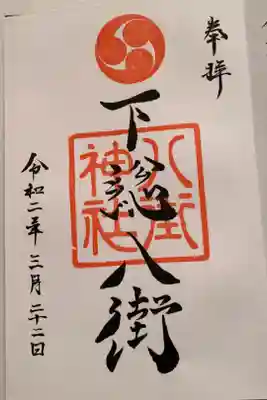 奉拝
下総八街
八街神社
令和二年三月二十二日